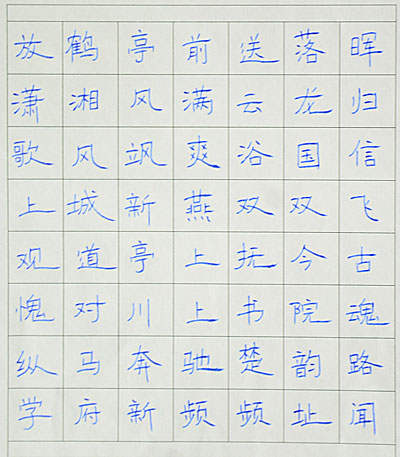 放鹤亭前送落晖
潇湘风满云龙归
歌风飒爽浴国信
上城新燕双双飞
观道亭上抚今古
愧对川上书院魂
纵马奔驰楚韵路
学府新频频址闻